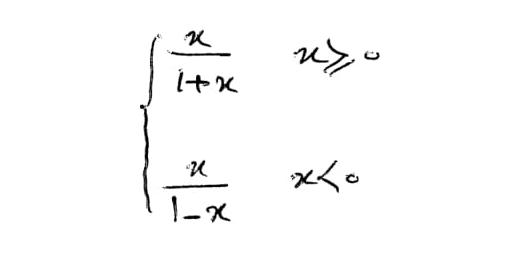 x/(1+x) x⩾0
x/(1-x) x<0